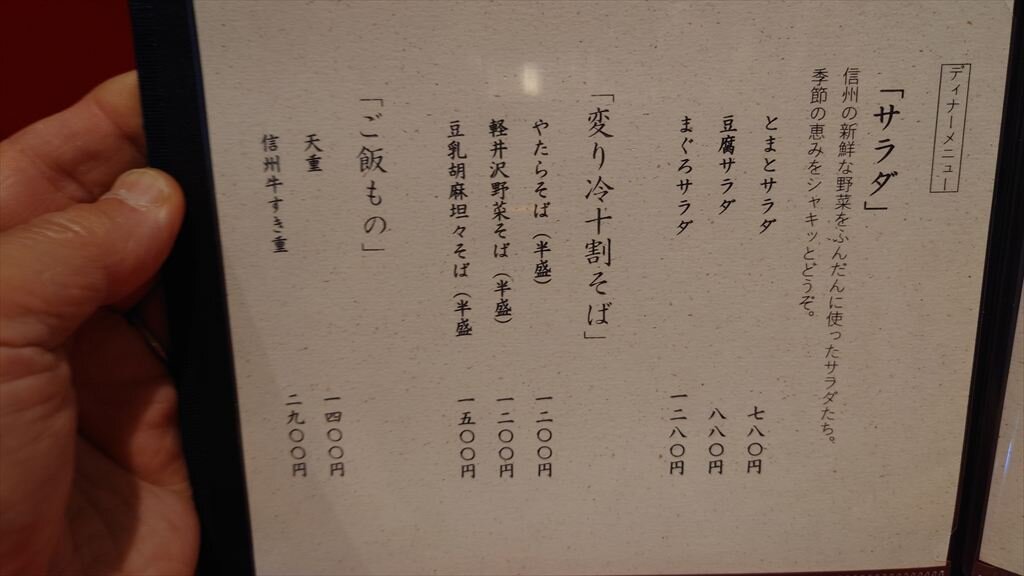 ディナーメニュー
「サラダ」
信州の新鮮な野菜をふんだんに使ったサラダたち。
季節の恵みをシャキッとどうぞ。
とまとサラダ 七八〇円
豆腐サラダ 八八〇円
まぐろサラダ 一二八〇円
「変り冷十割そば」
やたらそば（半盛） 一二〇〇円
軽井沢野菜そば（半盛） 一二〇〇円
豆乳胡麻坦々そば（半盛 一五〇〇円
「ご飯もの」
天重 一四〇〇円
信州牛すき重 二九〇〇円